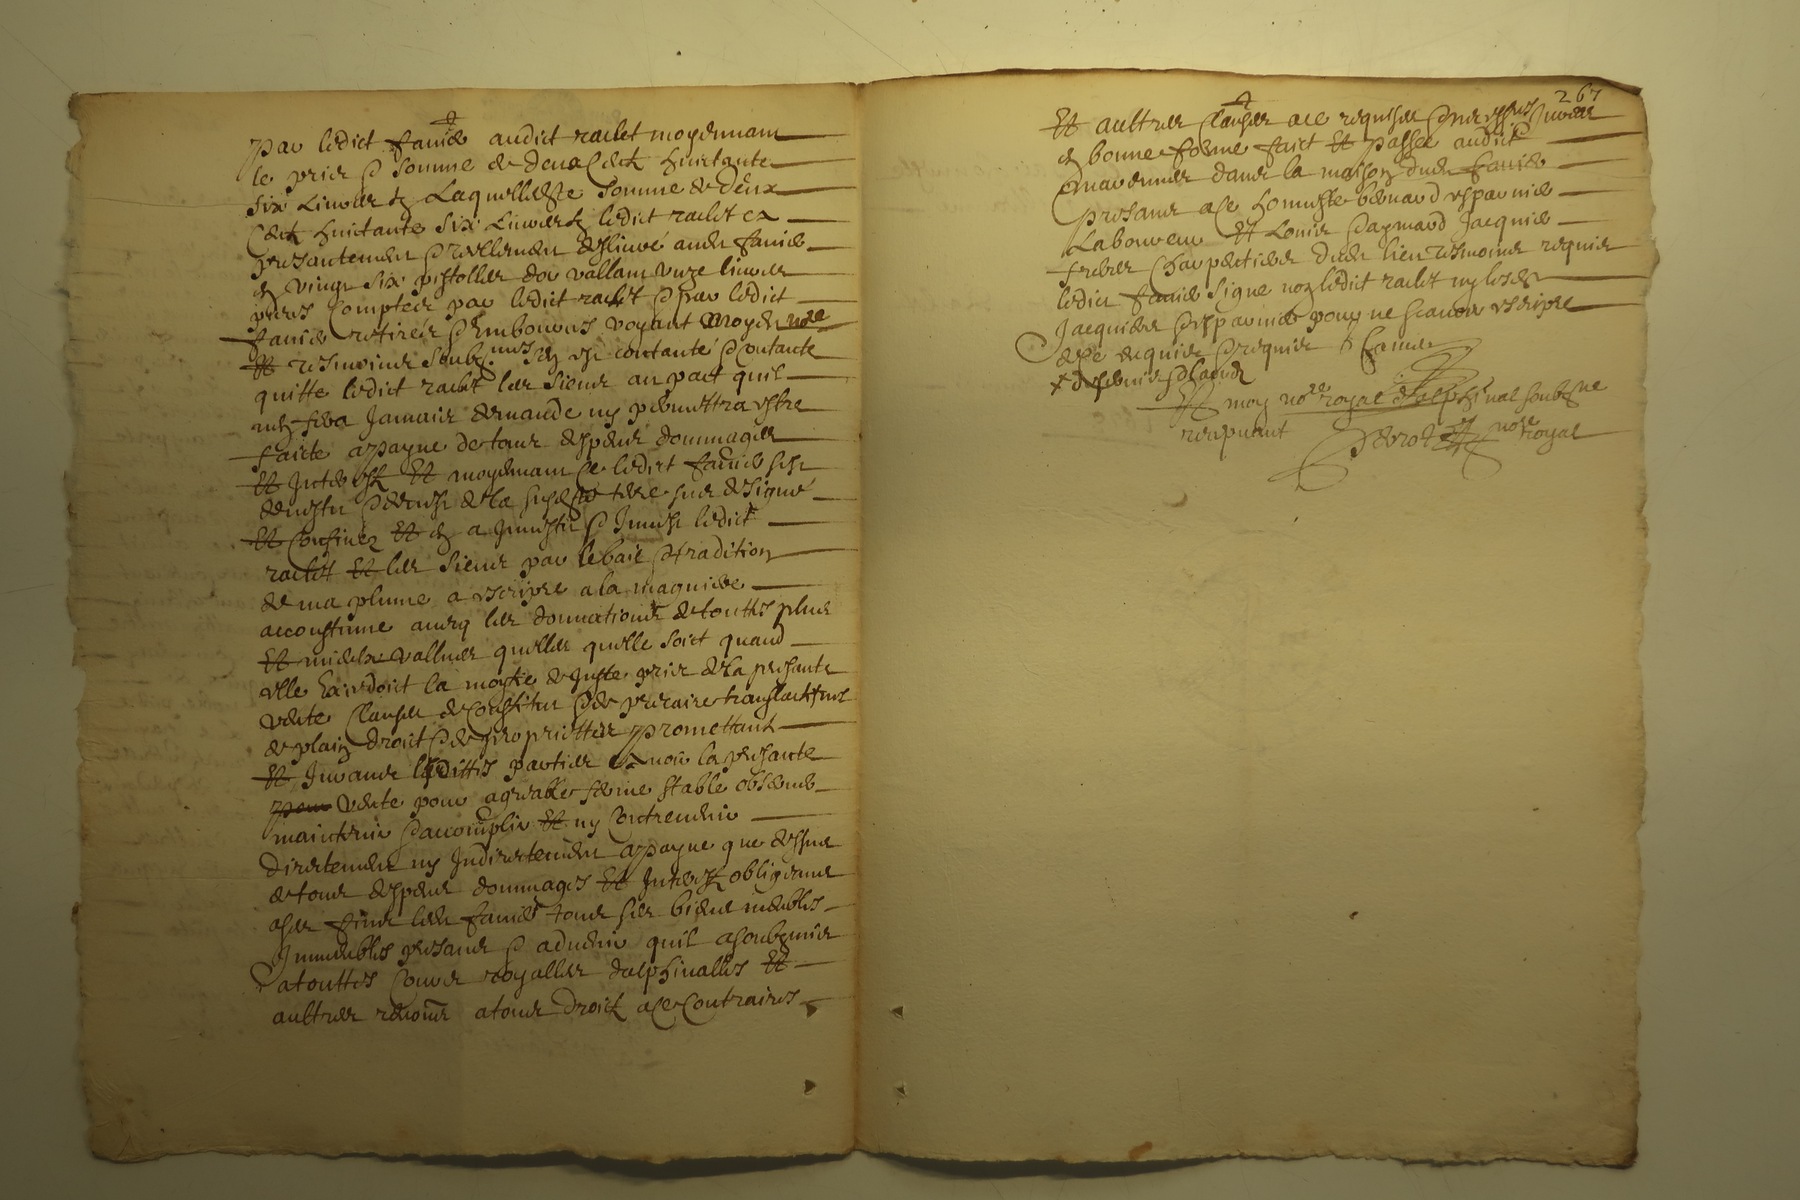 par ledict faure audict rachet moyennant
le prix & somme de deux Centz huictante
six Livres tz Laquelle dicte somme de deux
Centz huictante six Livres tz ledict rachet ex
presantement & reellement deslivre audit faure
en vingt six pistolles dor vallant unze livres
pieces Comptees par ledict rachet & par ledict
faure retirees & Embources voyant moy dit nore
Et tesmoins soubznes sen est contanté & contante
quitte ledict rachet les siens au pact quil
nen fera Jamais demande ny permettra estre
faicte a payne de tous despens dommages
Et Interestz Et moyennant ce ledict faure sest
desvestu & desvest de la susdicte terre sus designé
Et Confinee Et en a Investu & Invest ledict
rachet Et les siens par le bail & tradition
de ma plume a escripre a la magniere
accoustume avecq les donnations de touttes plus
Et mielx vallues quelles quelle soict quand
elle excedoict la moytie de Juste prix de la presante
vente Clauses de Constitut & de precaire translactives
de plain droict & de proprietté promettant
Et Jurants lesdittes parties avoir la presante
vente pour agreable ferme stable observer
maintenir & accomplir Et ny Contrevenir
directement ny Indirectement a payne que dessus
de tous despens dommages Et Interestz obligeant
a ces fins ledit faure tous ses biens meubles
Immeubles presans & advenir quil a soubzmis
a touttes Cours royalles dalphinalles Et
aultres renoncé a tous droictz a ce Contraires
267
Et aultres Clauses a ce requises
en bonne forme faict Et passé audict
dans la maison dudit faure
presans a ce honneste bernard esparvier
Laboureur Et Louis & aymard Jacquier
freres Charpentiers dudit lieu tesmoins requis
ledict faure signe non ledict rachet ny lesdits
Jacquiers & esparvier pour ne scavoir escripre
de ce enquis & requis
Et moy nore royal dalphinal soubzne
recepvant nore royal